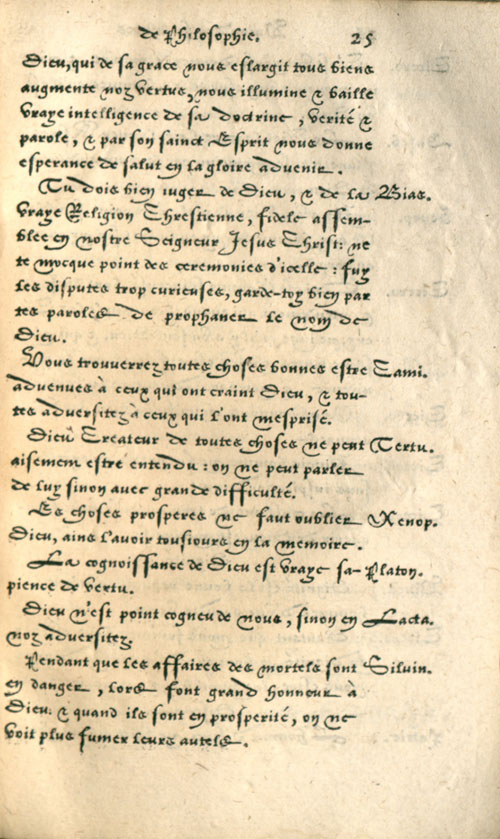 de Philosophie. 25
Dieu, qui de sa grace nous eslargit tous biens
augmente noz vertus, nous illumine & baille
vraye intelligence de sa doctrine, verité &
parole, & par son sainct Esprit nous donne
esperance de salut en la gloire advenir.
Tu dois bien iuger de Dieu, & de la Bias.
vraye Religion Chrestienne, fidele assem-
blee en nostre Seigneur Jesus Christ: ne
te mocque point des ceremonies d'icelle: fuy
les disputes trop curieuses, garde-toy bien par
tes paroles de prophaner le nom de
Dieu.
Vous trouverrez toutes choses bonnes estre Cami.
advenues à ceux qui ont craint Dieu, & tou-
tes adversitez à ceux qui l'ont mesprisé.
Dieu Createur de toutes choses ne peut Tertu.
aisement estre entendu: on ne peut parler
de luy sinon avec grande difficulté.
Es choses prosperes ne faut oublier Xenop.
Dieu, ains l'avoir tousiours en la memoire.
La cognoissance de Dieu est vraye sa- Platon.
pience de vertu.
Dieu n'est point cogneu de nous, sinon en Lacta.
noz adversitez.
Pendant que les affaires des mortels sont Silvin.
en danger, lors font grand honneur à
Dieu & quand ils sont en prosperité, on ne
voit plus fumer leurs autels.